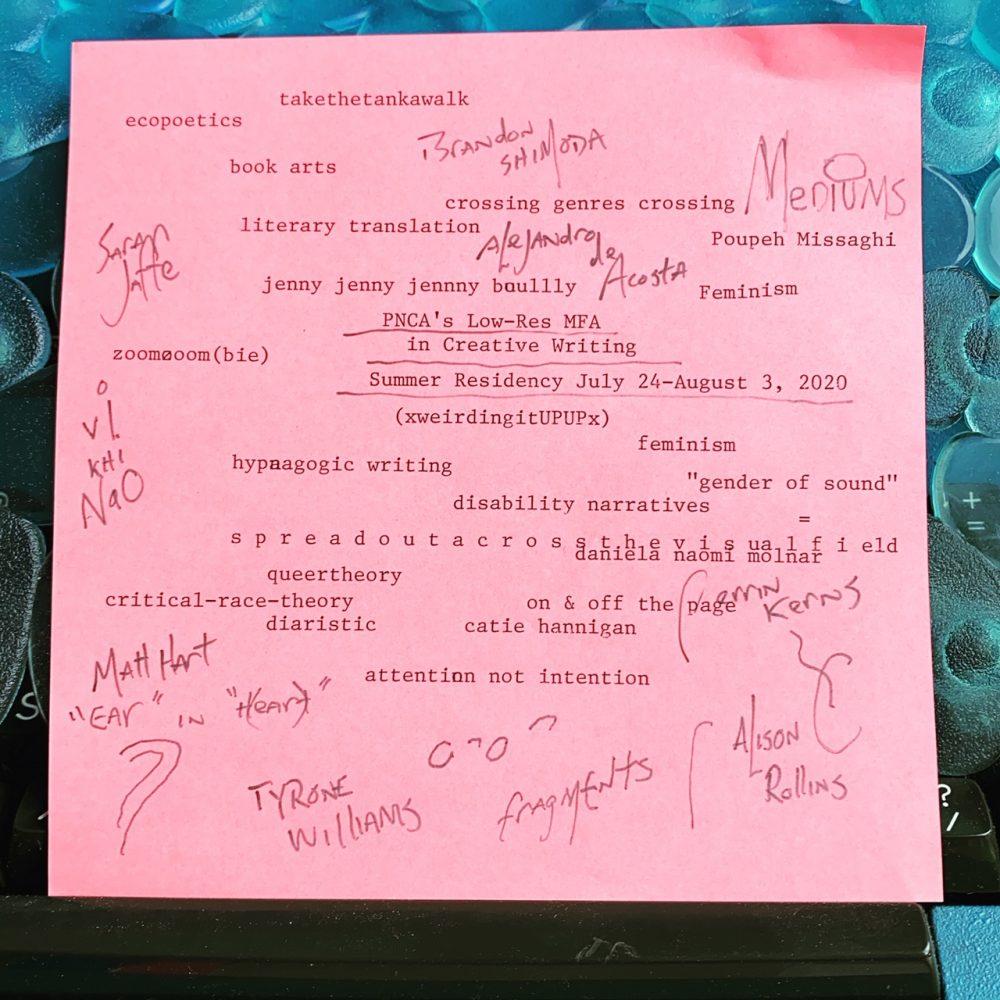 takethetankawalk
ecopoetics
Brandon
SHIMODA
book arts
Mediums
crossing genres crossing
literary translation
Sarah
Jaffe
Alejandro
de
Acosta
Poupeh Missaghi
jenny jenny jennny boullly
Feminism
PNCA's Low-Res MFA
in Creative Writing
zoomøoom(bie)
Summer Residency July 24-August 3, 2020
(xweirdingitUPUPx)
VI
KHI
NaO
feminism
hypnagogic writing
"gender of sound"
disability narratives
=
s p r e a d o u t a c r o s s t h e v i s u a l f i eld
daniela naomi molnar
queertheory
critical-race-theory
on & off the page
Kerns
diaristic
catie hannigan
Matt Hart
"EAR" IN "Heart"
attention not intention
Alison
Rollins
TYRONE
WILLIAMS
fragments